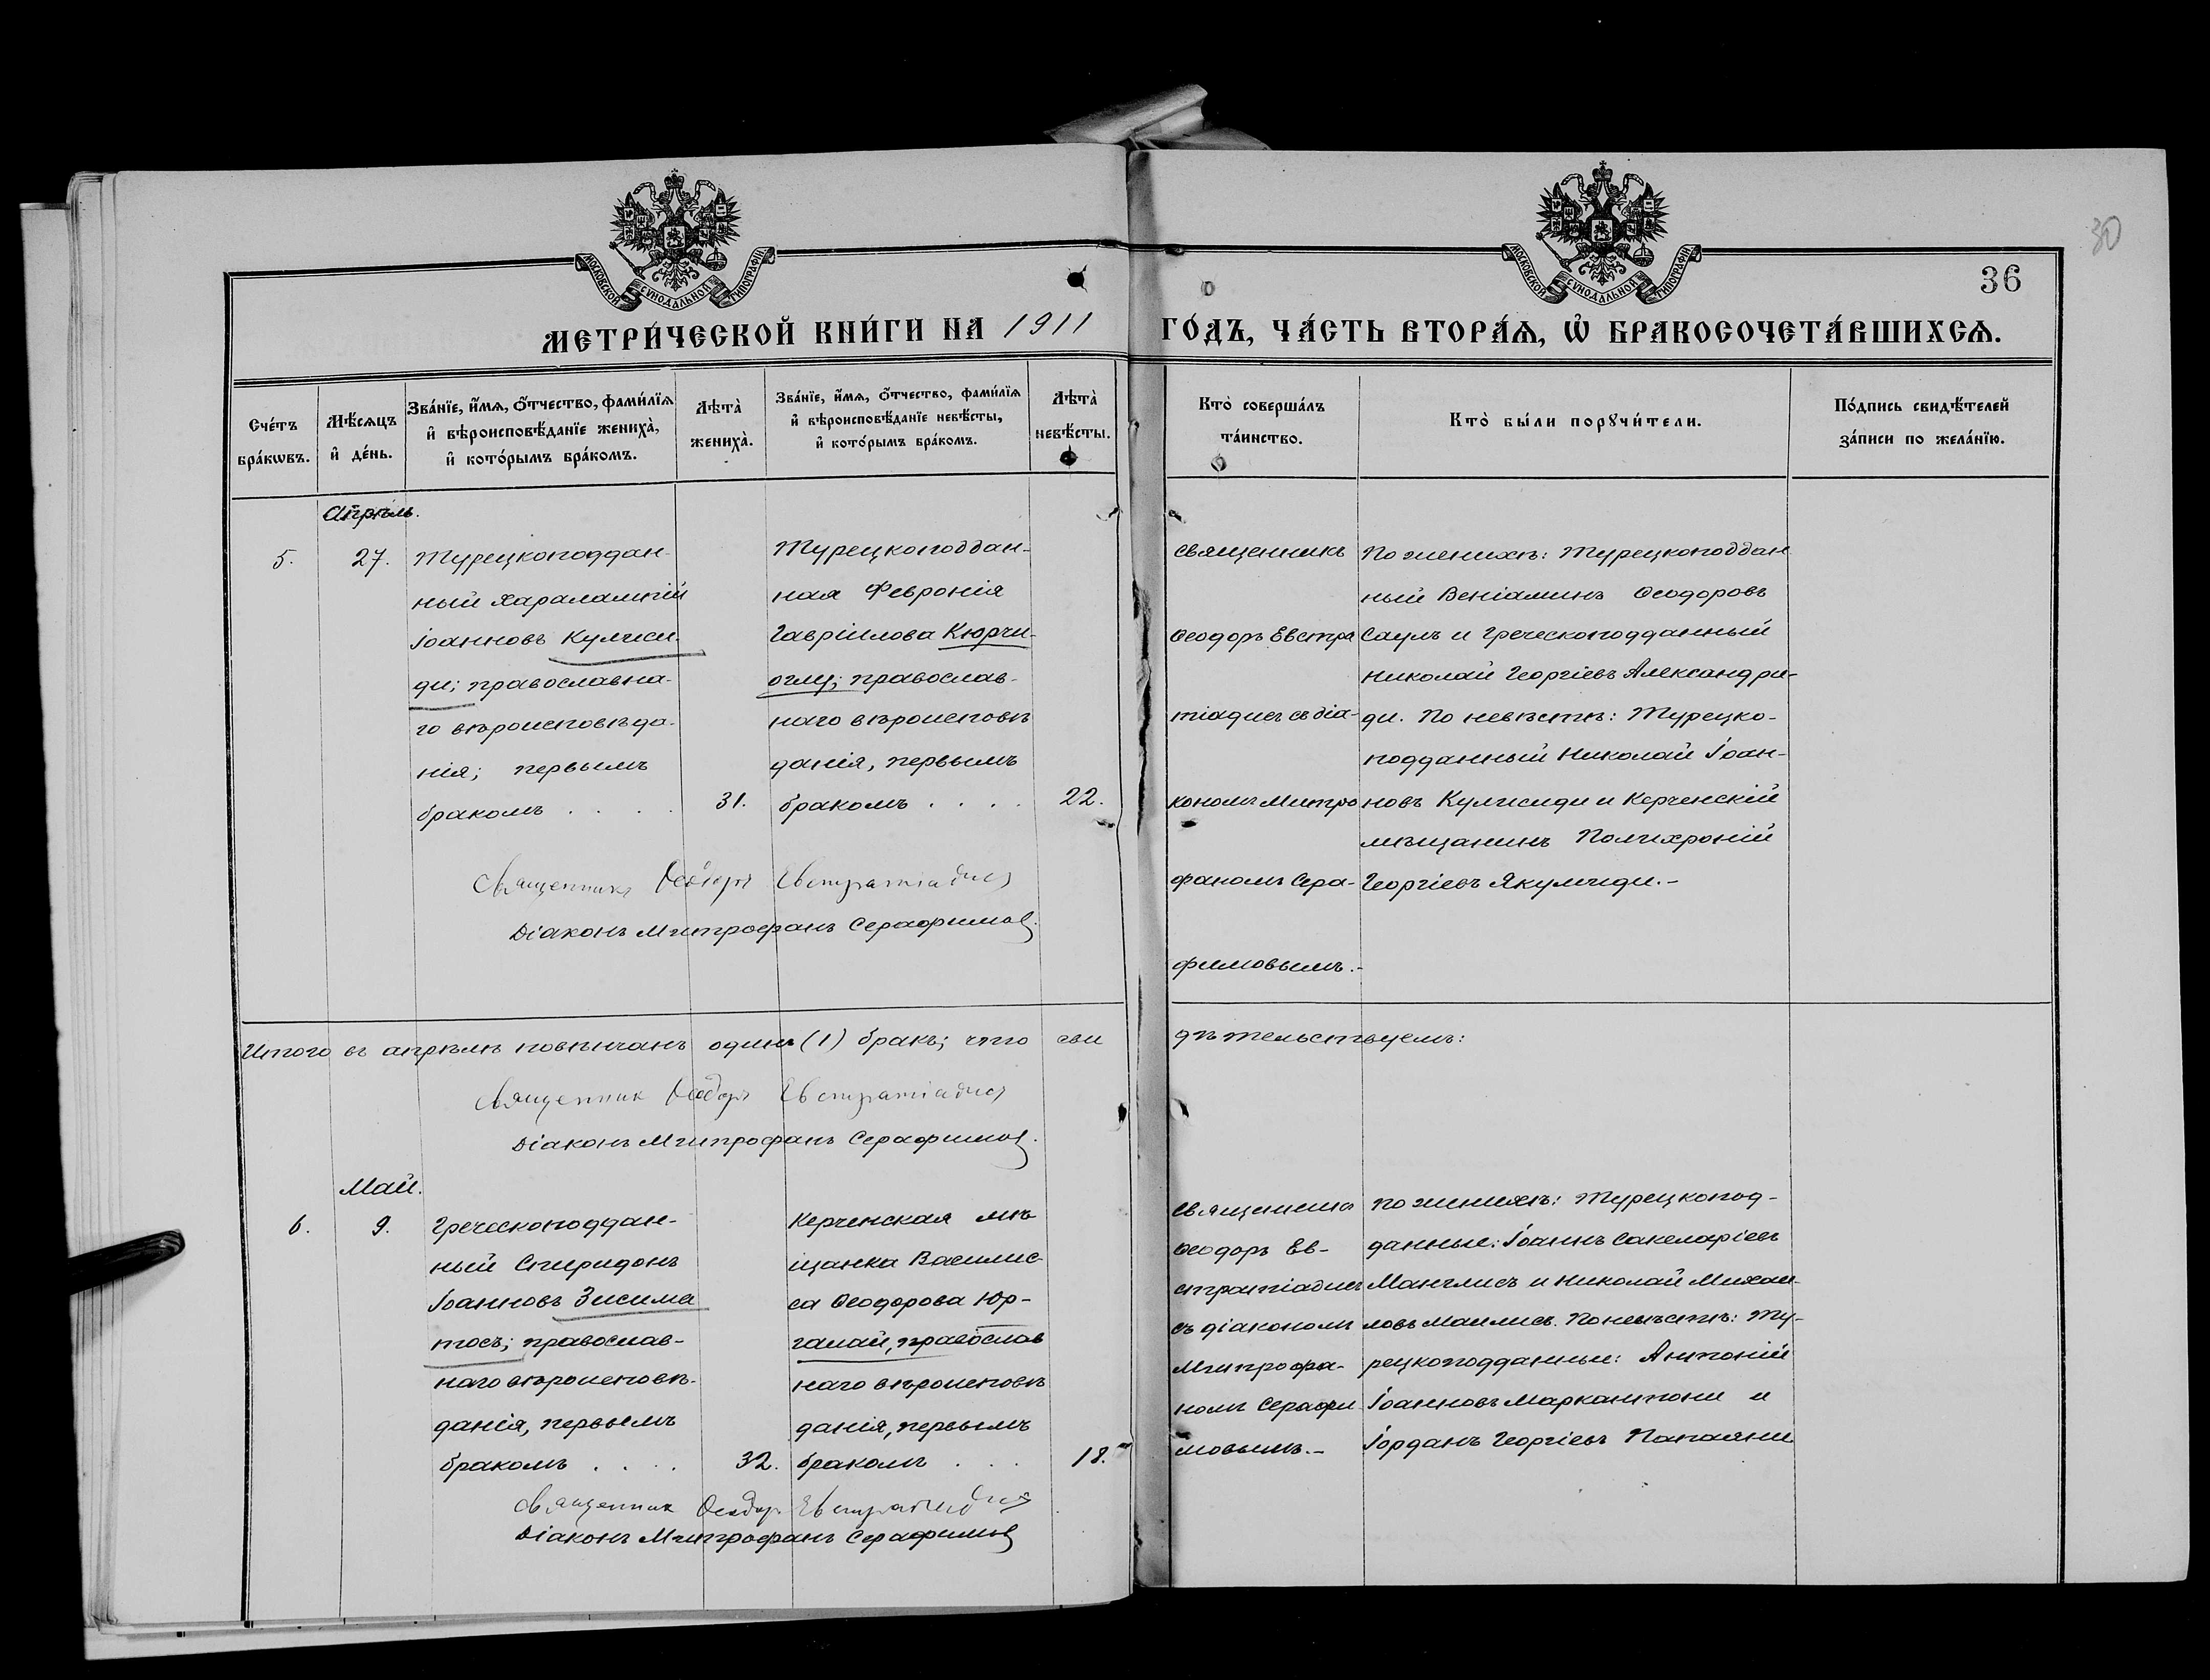 МОСКОВСКОЙ СУНОДАЛЬНОЙ ТИПОГРАФІИ
МОСКОВСКОЙ СУНОДАЛЬНОЙ ТИПОГРАФІИ
30
36
МЕТРИ́ЧЕСКОЙ КНИ́ГИ НА 1911 ГО́ДЪ, ЧА́СТЬ ВТОРА́Ѧ, Ѡ҆ БРАКОСОЧЕТА́ВШИХСѦ.
Сче́тъ
бра́кѡвъ.
Мѣ́сѧцъ
и҆ де́нь.
Зва́нїе, и҆́мѧ, ѻ҆́тчество, фами́лїѧ
и҆ вѣроисповѣ́данїе жениха̀,
и҆ кото́рымъ бра́комъ.
Лѣта̀
жениха̀.
Зва́нїе, и҆́мѧ, ѻ҆́тчество, фами́лїѧ
и҆ вѣроисповѣ́данїе невѣ́сты,
и҆ кото́рымъ бра́комъ.
Лѣта̀
невѣ́сты.
Кто̀ соверша́лъ
та́инство.
Кто̀ бы́ли порꙋчи́тели.
По́дпись свидѣ́телей
за́писи по жела́нїю.
Апрѣль.
5.
27.
Турецкоподдан-
ный Харалампій
Іоанновъ Кулиси-
ди; православна-
го вѣроисповѣда-
нія; первымъ
бракомъ . . . .
31.
Турецкоподдан-
ная Февронія
Гавріилова Кюрчи-
оглу; православ-
наго вѣроисповѣ
данія, первымъ
бракомъ . . . .
22.
Священникъ
Ѳеодоръ Евстра
тіадисъ съ діа-
кономъ Митро
фаномъ Сера-
фимовымъ.-
По женихѣ: Турецкоподдан
ный Веніаминъ Ѳеодоровъ
Саулъ и Греческоподданный
Николай Георгіевъ Александри-
ди. По невѣстѣ: Турецко-
подданный Николай Іоан-
новъ Кулисиди и Керченскій
мѣщанинъ Полихроній
Георгіевъ Якулиди.-
Священникъ Ѳеодоръ Евстратіадисъ
Діаконъ Митрофанъ Серафимовъ.
Итого въ апрѣлѣ повѣнчанъ одинъ (1) бракъ; что сви дѣтельствуемъ:
Священник Ѳеодоръ Евстратіадисъ
Діаконъ Митрофанъ Серафимовъ.
Май.
6.
9.
Греческоподдан-
ный Спиридонъ
Іоанновъ Зисима
тосъ; православ-
наго вѣроисповѣ-
данія, первымъ
бракомъ . . . .
32.
Керченская мѣ
щанка Василис-
са Ѳеодорова Юр-
галай, православ
наго вѣроисповѣ
данія, первымъ
бракомъ . . .
18.
Священникъ
Ѳеодоръ Ев-
стратіадисъ
съ діакономъ
Митрофа-
номъ Серафи
мовымъ.-
По женихѣ: Турецкопод-
данные: Іоаннъ Сакеларіевъ
Манглисъ и Николай Михаи-
ловъ Маилисъ. По невѣстѣ: Ту-
рецкоподданные: Антоній
Іоанновъ Маркантони и
Іорданъ Георгіевъ Папаяни
Священник Ѳеодор Евстратіадисъ
Діаконъ Митрофанъ Серафимовъ